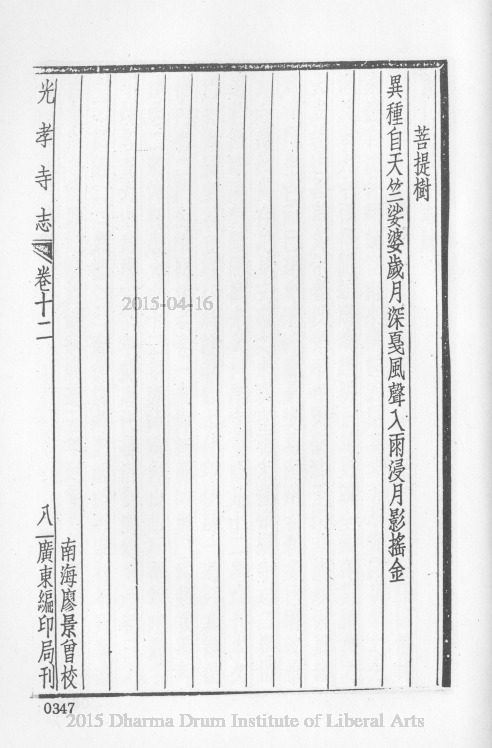 菩提樹
異種自天竺娑婆歲月深戛風聲入雨浸月影搖金
南海廖景曾校
光孝寺志 卷十二 八 廣東編印局刊
0347
2015-04-16
2015 Dharma Drum Institute of Liberal Arts